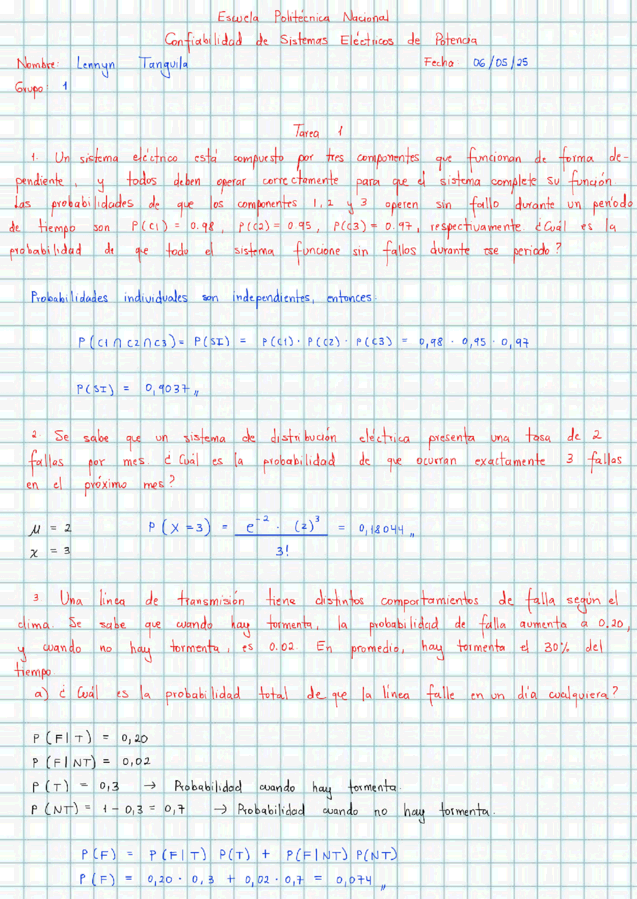 Escuela Politécnica Nacional
Confiabilidad de Sistemas Eléctricos de Potencia
Nombre: Lennyn Tanguila Fecha 06/05/25
Grupo: 1
Tarea 1
1. Un sistema eléctrico está compuesto por tres componentes que funcionan de forma de-
pendiente, y todos deben operar correctamente para que el sistema complete su función
Las probabilidades de que los componentes 1, 2 y 3 operen sin fallo durante un periodo
de tiempo son P(C1) = 0.98, P(C2) = 0.95, P(C3) = 0.97, respectivamente ¿Cuál es la
probabilidad de que todo el sistema funcione sin fallos durante ese periodo?
Probabilidades individuales son independientes, entonces:
P(C1 ∩ C2 ∩ C3) = P(SI) = P(C1) · P(C2) · P(C3) = 0,98 · 0,95 · 0,97
P(SI) = 0,9037 //
2 Se sabe que un sistema de distribución eléctrica presenta una tasa de 2
fallas por mes. ¿Cuál es la probabilidad de que ocurran exactamente 3 fallas
en el próximo mes?
μ = 2 P(X=3) = e^-2 · (2)^3 / 3! = 0,18044 //
x = 3
3 Una linea de transmisión tiene distintos comportamientos de falla según el
clima. Se sabe que cuando hay tormenta, la probabilidad de falla aumenta a 0.20,
y cuando no hay tormenta, es 0.02. En promedio, hay tormenta el 30% del
tiempo
a) ¿Cuál es la probabilidad total de que la línea falle en un día cualquiera?
P(F|T) = 0,20
P(F|NT) = 0,02
P(T) = 0,3 → Probabilidad cuando hay tormenta.
P(NT) = 1 - 0,3 = 0,7 → Probabilidad cuando no hay tormenta.
P(F) = P(F|T) P(T) + P(F|NT) P(NT)
P(F) = 0,20 · 0,3 + 0,02 · 0,7 = 0,074 //